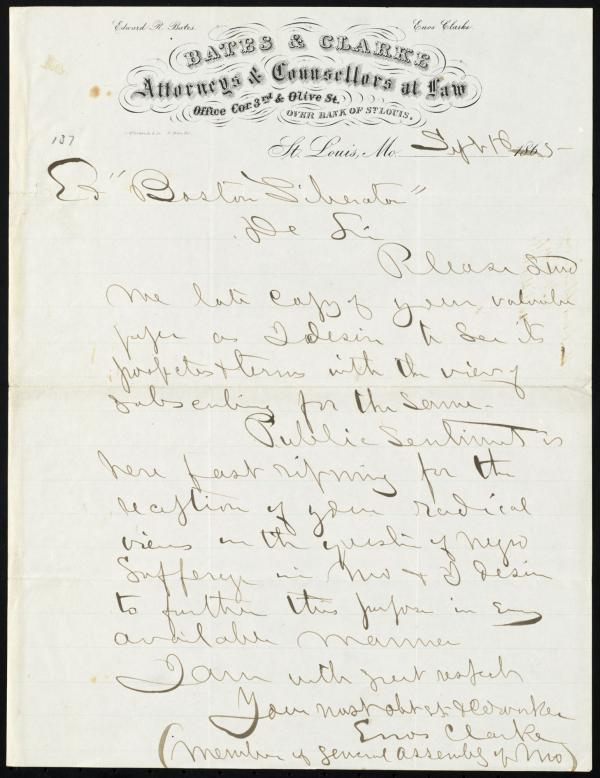 Edward R. Bates.
Enos Clarke
BATES & CLARKE
Attorneys & Counsellors at Law
Office Cor. 3rd & Olive St.
OVER BANK OF ST LOUIS.
137
St. Louis, Mo. Sept 1865
Ed "Boston Liberator"
De Sir
Please Send
me late copy of your valuable
paper as I desire to see its
prospectus & terms with the view of
subscribing for the same.
Public Sentiment is
here fast ripning for the
reception of your radical
views on the question of negro
Sufferage in Mo & I desire
to further this purpose in every
available manner
I am with great respect
Your most obt svt & coworker
Enos Clarke
(member of general assembly of Mo)